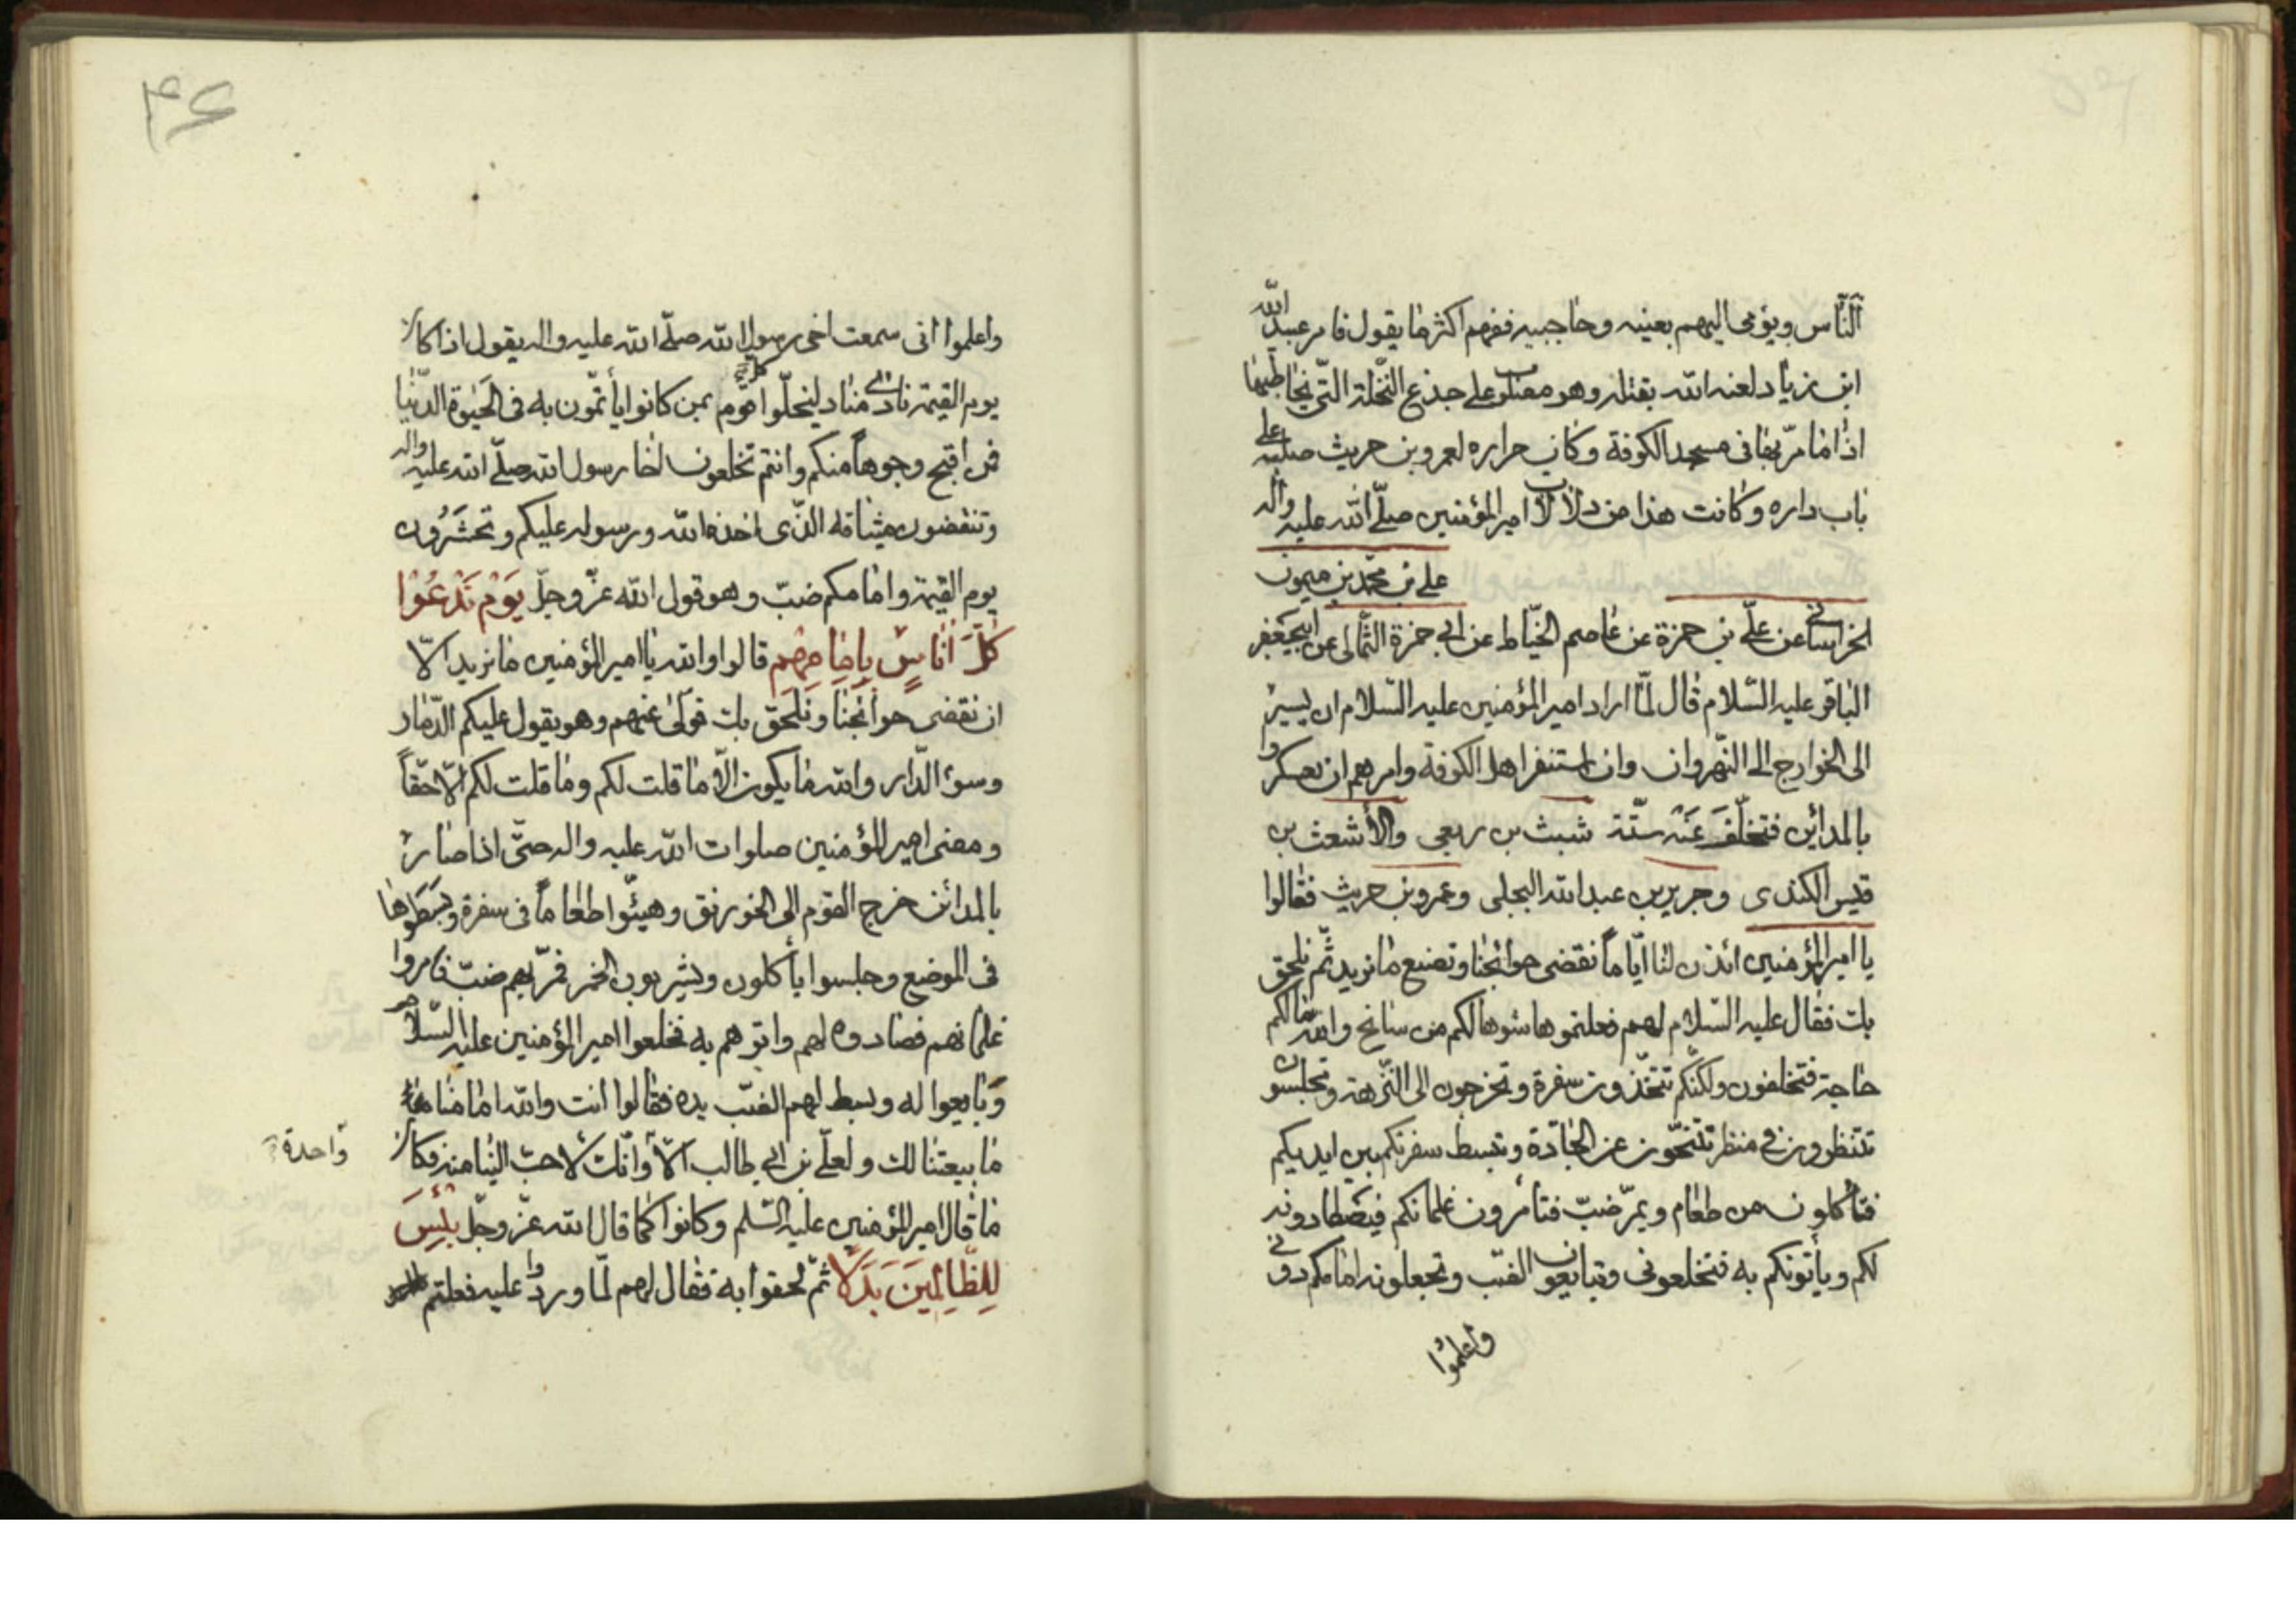 النّاس ويؤمى اليهم بعينه وحاجبيه ففهم اكثر ما يقول فامر عبيد الله
ابن زياد لعنه الله بقتله وهو مصلوب على جذع النّخلة التّى يخاطبها
اذا ما مرّ بها فى مسجد الكوفة وكان جداره لعمرو بن حريث صلبه على
باب داره وكانت هذا من دلالات امير المؤمنين صلّى الله عليه واله
على بن محمّد بن ميمون
الخراسانى عن علّى بن حمزة عن عاصم الخيّاط عن ابى حمزة الثّمالى عن ابيجعفر
الباقر عليه السّلام قال لمّا اراد امير المؤمنين عليه السّلام ان يسير
الى الخوارج الى النّهروان وان استنفر اهل الكوفة وامرهم ان يعسكروا
بالمدائن فتخلّف عنه ستّة شبث بن ربعى والأشعث بن
قيس الكندى وجرير بن عبد الله البجلى وعمرو بن حريث فقالوا
يا امير المؤمنين ائذن لنا ايّاماً نقضى حوائجنا ونصنع ما نريد ثمّ نلحق
بك فقال عليه السّلام لهم فعلتموها سوها لكم من سانح والله ما لكم
حاجة فتخلفون ولكنّكم تتخذون سفرة وتخرجون الى النّزهة وتجلسون
تنتظرون فى منظر تتنحّون عن الجادة وتبسط سفرتكم بين ايديكم
فتأكلون من طعام ويمرّ ضبّ فتأمرون غلمانكم فيصطادونه
لكم ويأتونكم به فتخلعونى وتبايعون الضبّ وتجعلونه امامكم دونى
واعلموا
۴۶
واعلموا انى سمعت اخى رسول الله صلّى الله عليه واله يقول اذا كان
يوم القيمة نادى مناد ليخلوا كل قوم بمن كانوا يأتمّون به فى الحيوة الدّنيا
فمن اقبح وجوهاً منكم وانتم تخلعون اخا رسول الله صلّى الله عليه واله
وتنقضون ميثاقه الذّى اخذه الله ورسوله عليكم وتحشرون
يوم القيمة وامامكم ضبّ وهو قول الله عزّ وجلّ يَوْمَ نَدْعُوْا
كُلَّ اُنَاسٍ بِاِمَامِهِم قالوا والله يا امير المؤمنين ما نريد الّا
ان نقضى حوائجنا ونلحق بك فولّى عنهم وهو يقول عليكم الدّمار
وسوء الدّار والله ما يكون الّا ما قلت لكم وما قلت لكم الّا حقّاً
ومضى امير المؤمنين صلوات الله عليه واله حتّى اذا صار
بالمدائن خرج القوم الى الخورنق وهيّئوا طعاماً فى سفرة وبسطوها
فى الموضع وجلسوا يأكلون ويشربون الخمر فمرّ بهم ضبّ فامروا
غلمانهم فصادوه لهم واتوهم به فخلعوا امير المؤمنين عليه السّلام
وبايعوا له وبسط لهم الضبّ يده فقالوا انت والله امامنا
ما بيعتنا لك ولعلّى بن ابى طالب الّا وانّك لاحبّ الينا منه فكان
واحدة
ما قال امير المؤمنين عليه السّلم وكانوا كما قال الله عزّ وجلّ بِئْسَ
لِلظّالِمِينَ بَدَلًا ثمّ لحقوا به فقال لهم لمّا وردوا عليه فعلتم